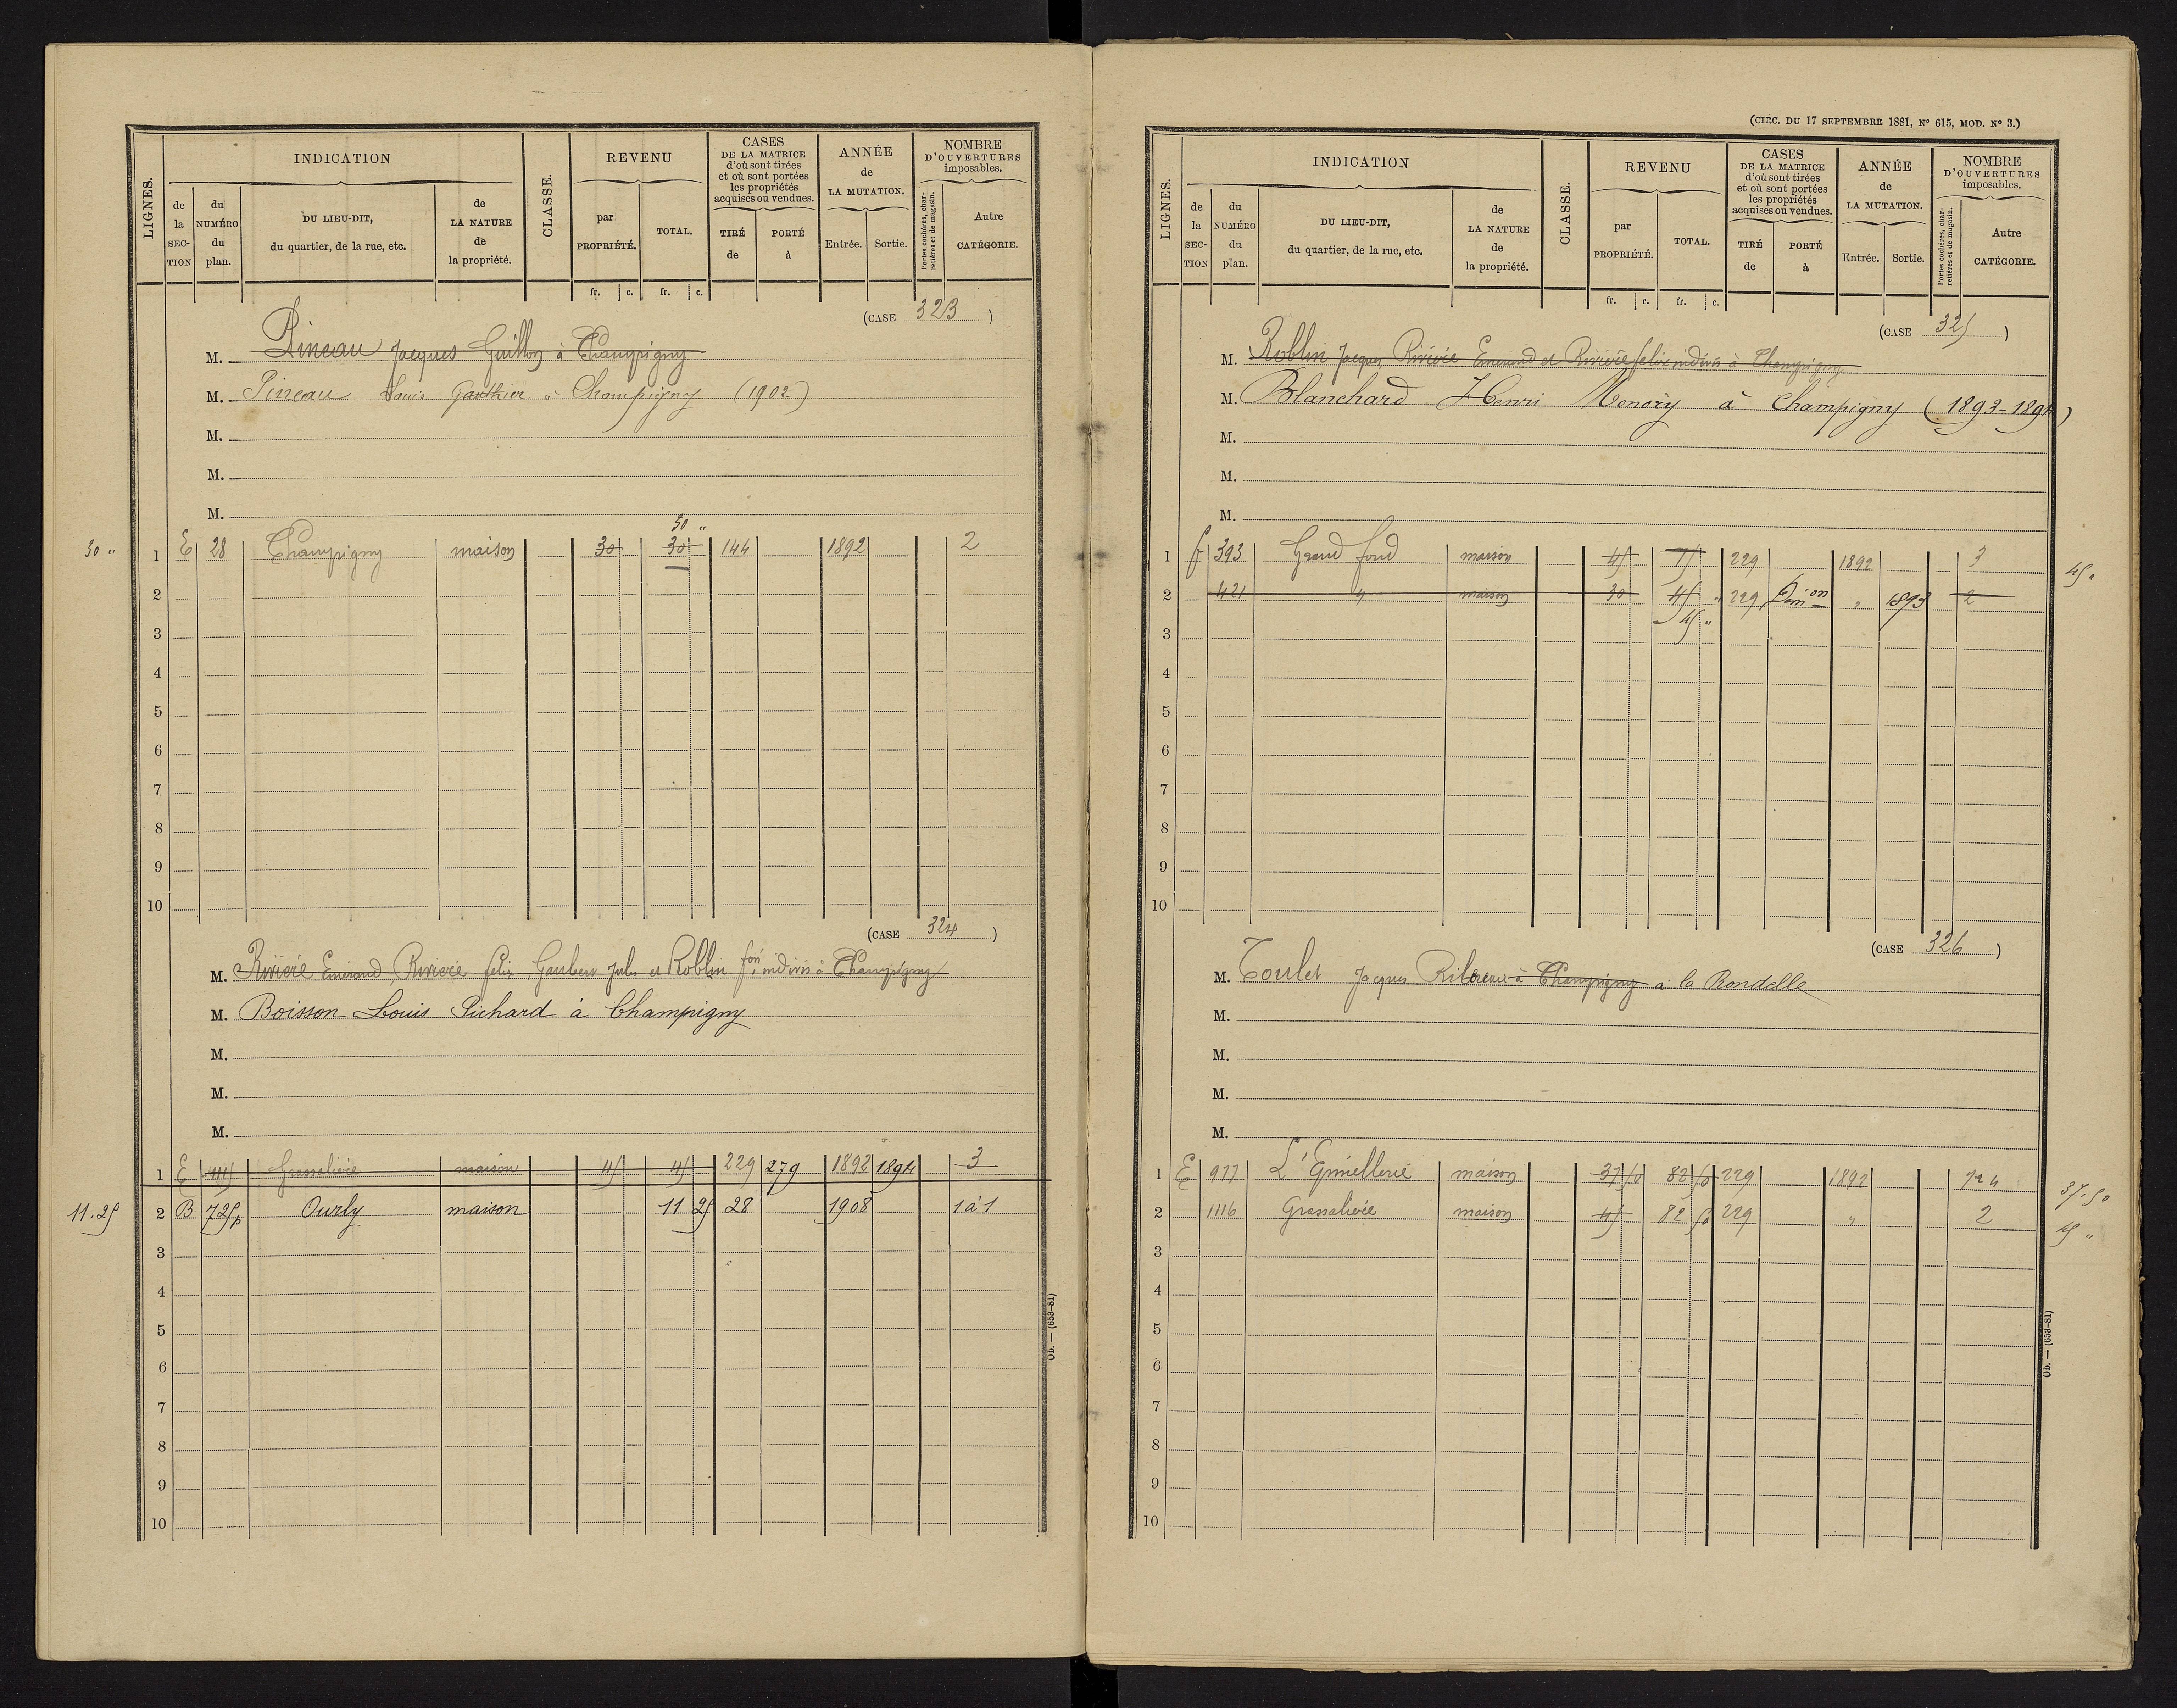 LIGNES.
INDICATION
de la SECTION
du NUMÉRO du plan.
DU LIEU-DIT, du quartier, de la rue, etc.
de LA NATURE de la propriété.
CLASSE.
REVENU
par PROPRIÉTÉ.
TOTAL.
CASES DE LA MATRICE d'où sont tirées et où sont portées les propriétés acquises ou vendues.
TIRÉ de
PORTÉ à
ANNÉE de LA MUTATION.
Entrée. Sortie.
NOMBRE D'OUVERTURES imposables.
Portes cochères, charretières et de magasin.
Autre CATÉGORIE.
fr. c. fr. c.
(CASE 323)
M. Pineau Jacques Guillon à Champigny
M. Pineau Louis Gauthier à Champigny (1902)
M.
M.
M.
30 "
30 " 1 E 28 Champigny maison 30 30 144 1892 2
2
3
4
5
6
7
8
9
10
(CASE 324)
M. Rivière Emerand, Rivière félix, Jules et Roblin indivis à Champigny
M. Boisson Louis Pichard à Champigny
M.
M.
M.
1 E 1115 maison 45 45 229 279 1892 1894 3
11.25 2 B 725p Ourly maison 11 25 28 1908 1 à 1
3
4
5
6
7
8
9
10
Ob. — (653-81)
(CIRC. DU 17 SEPTEMBRE 1881, N° 615, MOD. N° 3.)
LIGNES.
INDICATION
de la SECTION
du NUMÉRO du plan.
DU LIEU-DIT, du quartier, de la rue, etc.
de LA NATURE de la propriété.
CLASSE.
REVENU
par PROPRIÉTÉ.
TOTAL.
CASES DE LA MATRICE d'où sont tirées et où sont portées les propriétés acquises ou vendues.
TIRÉ de
PORTÉ à
ANNÉE de LA MUTATION.
Entrée. Sortie.
NOMBRE D'OUVERTURES imposables.
Portes cochères, charretières et de magasin.
Autre CATÉGORIE.
fr. c. fr. c.
(CASE 325)
M. Roblin Jacques, Rivière Emerand et Rivière félix indivis à Champigny
M. Blanchard Henri Menory à Champigny (1893-1894)
M.
M.
M.
1 393 Grand fond maison 45 75 229 1892 3 45 "
2 421 " maison 30 45 " 229 " 1893 2
45 "
3
4
5
6
7
8
9
10
(CASE 326)
M. Toulet Jacques à Champigny à la Rondelle
M.
M.
M.
M.
1 E 977 maison 37 50 82 50 229 1892 37.50
2 1116 maison 45 82 50 229 " 2 45 "
3
4
5
6
7
8
9
10
Ob. — (653-81)